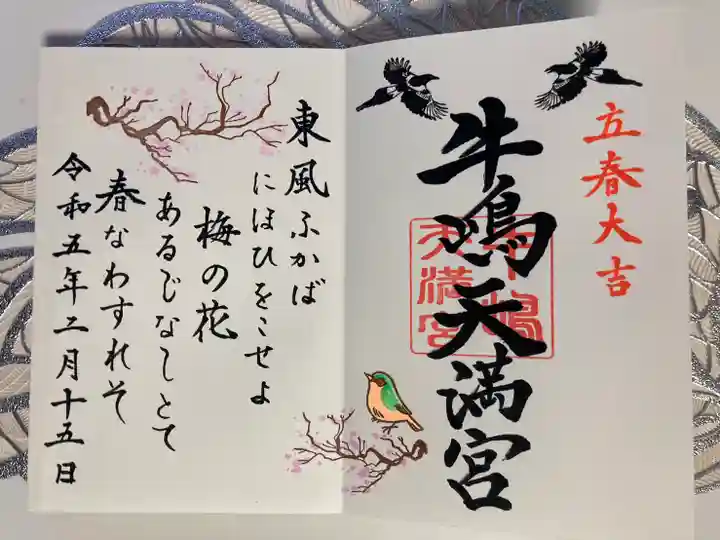 立春大吉
牛嶋天満宮
牛嶋
天満宮
東風ふかば
にほひをこせよ
梅の花
あるじなしとて
春なわすれそ
令和五年二月十五日